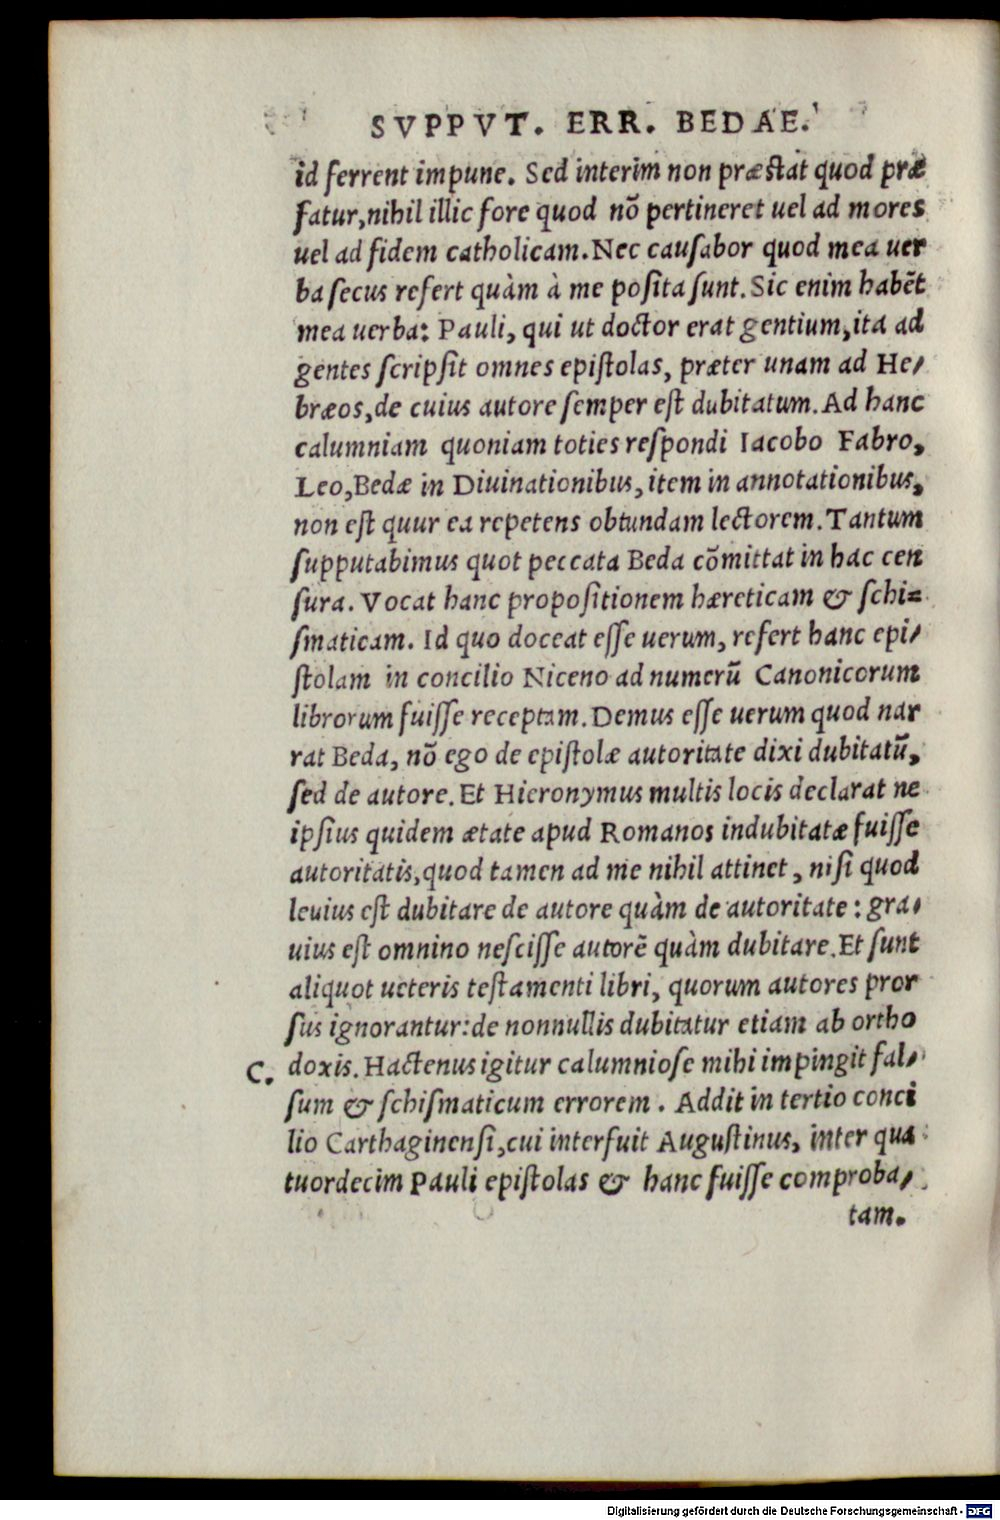 SVPPVT. ERR. BEDAE.
id ferrent impune. Sed interim non præſtat quod præ
fatur,nihil illic fore quod nõ pertineret uel ad mores
uel ad fidem catholicam.Nec cauſabor quod mea uer
ba ſecus refert quàm à me poſita ſunt. Sic enim habẽt
mea uerba: Pauli, qui ut doctor erat gentium,ita ad
gentes ſcripſit omnes epiſtolas, præter unam ad He⸗
bræos,de cuius autore ſemper eſt dubitatum. Ad hanc
calumniam quoniam toties reſpondi Iacobo Fabro,
Leo,Bedæ in Diuinationibus,item in annotationibus,
non eſt quur ea repetens obtundam lectorem.Tantum
ſupputabimus quot peccata Beda cõmittat in hac cen
ſura. Vocat hanc propoſitionem hæreticam & ſchi⸗
ſmaticam. Id quo doceat eſſe uerum, refert hanc epi⸗
ſtolam in concilio Niceno ad numerũ Canonicorum
librorum fuiſſe receptam.Demus eſſe uerum quod nar
rat Beda, nõ ego de epiſtolæ autoritate dixi dubitatũ,
ſed de autore.Et Hieronymus multis locis declarat ne
ipſius quidem ætate apud Romanos indubitatæ fuiſſe
autoritatis,quod tamen ad me nihil attinet, niſi quod
leuius eſt dubitare de autore quàm de autoritate: gra⸗
uius eſt omnino neſciſſe autorẽ quàm dubitare.Et ſunt
aliquot ueteris teſtamenti libri, quorum autores pror
ſus ignorantur:de nonnullis dubitatur etiam ab ortho
C. doxis.Hactenus igitur calumnioſe mihi impingit fal⸗
ſum & ſchiſmaticum errorem. Addit in tertio conci
lio Carthaginenſi,cui interfuit Auguſtinus, inter qua
tuordecim Pauli epiſtolas & hanc fuiſſe comproba⸗
tam.
Digitalisierung gefördert durch die Deutsche Forschungsgemeinschaft - DFG